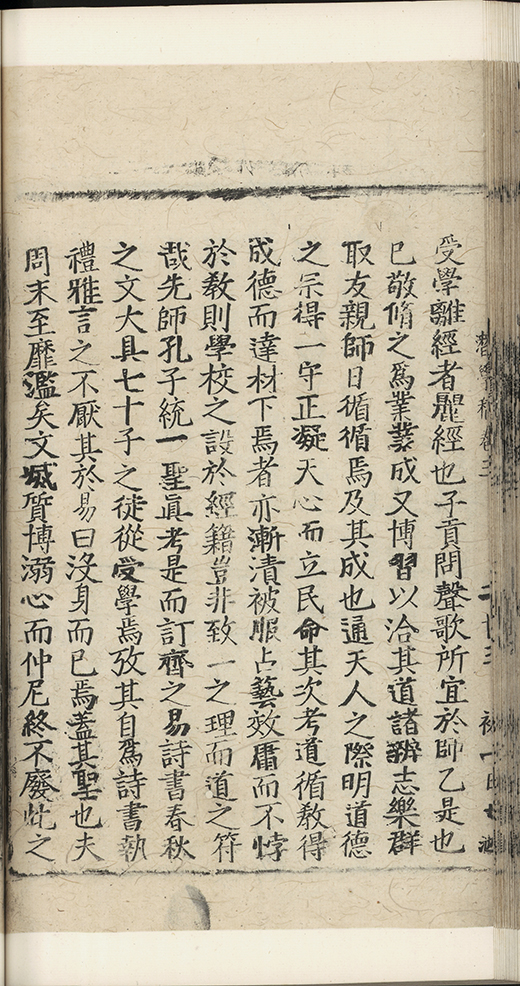 受學離經者羆經也子貢問聲歌所宜於師乙是也
已敬脩之爲業業成又博習以洽其道諸辨志樂群
取友親師日循循焉及其成也通天人之際明道德
之宗得一守正凝天心而立民命其次考道循敎得
成德而達材下焉者亦漸漬被服占藝效庸而不悖
於敎則學校之設於經籍豈非致一之理而道之符
哉先師孔子統一聖眞考是而訂齊之易詩書春秋
之文大具七十子之徒從受學焉攷其自爲詩書執
禮雅言之不厭其於易曰沒身而已焉蓋其聖也夫
周末至靡濫矣文滅質博溺心而仲尼終不廢此之
卷三
二十三